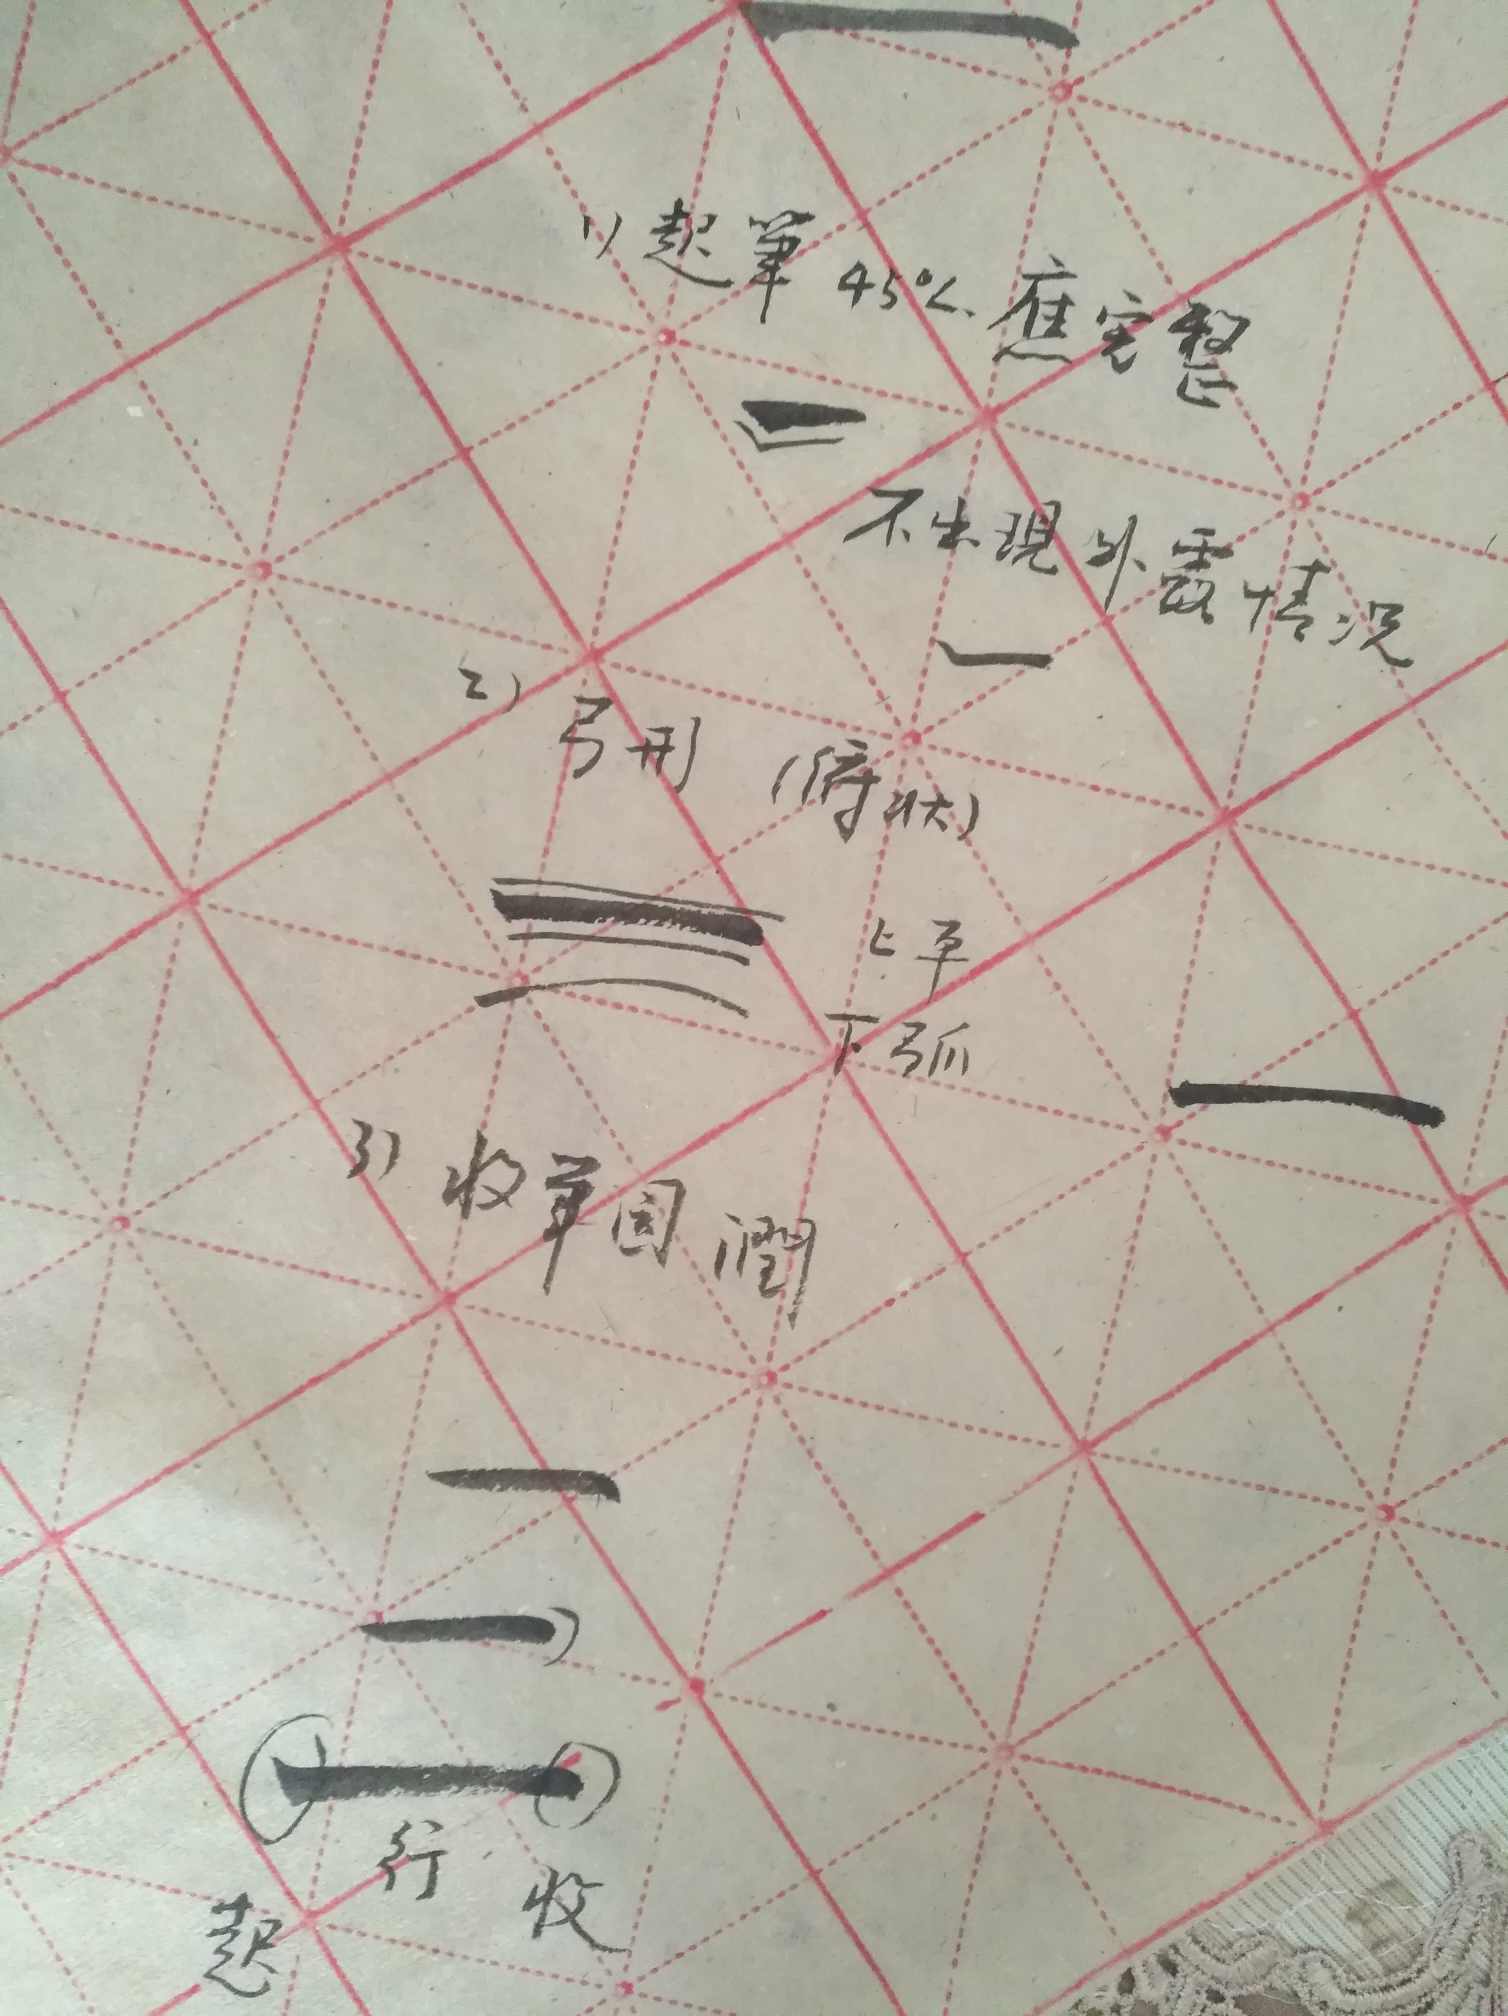 1) 起筆 45°∠ 應完整
不出現外露情況
2) 弓形 (俯状)
上平
下弧
3) 收筆圆潤
行 收
起